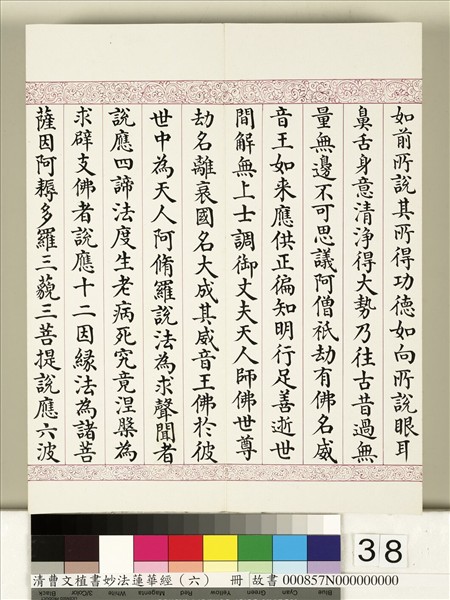 如前所說其所得功德如向所說眼耳
鼻舌身意清淨得大勢乃往古昔過無
量無邊不可思議阿僧祇劫有佛名威
音王如来應供正徧知明行足善逝世
間解無上士調御丈夫天人師佛世尊
劫名離衰國名大成其威音王佛於彼
世中為天人阿脩羅說法為求聲聞者
說應四諦法度生老病死究竟涅槃為
求辟支佛者說應十二因緣法為諸菩
薩因阿耨多羅三藐三菩提說應六波
38
Black
3/Color
White
Magenta
Red
Yellow
Green
Cyan
Blue
清曹文植書妙法蓮華經（六） 冊 故書 000857N000000000